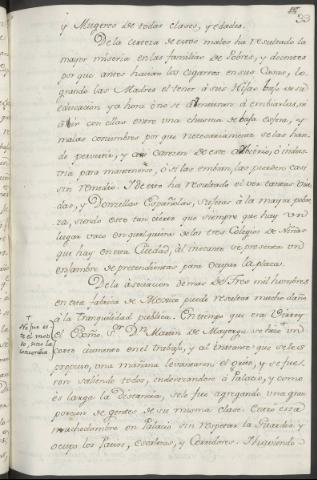 33
y Mugeres de todas clases, y edades.
De la certeza de estos males ha resultado la
mayor miseria en las familias de Pobres, y decentes
por que antes hacian los cigarros en sus Casas, lo
grando las Madres el tener á sus Hijas bajo su
educacion y ahora ó no se á embiarlas, ó
ir con ellas entre una chusma de baja esfera, y
malas costumbres por que necesariamente se las han
de pervertir, y carecen de este ó indus
tria para mantenerse, ó si las embian, las pierden casi
sin remedio. De esto ha resultado el ver tantas Viu
das, y Donzellas Españolas, sugetas á la mayor pobre
za, siendo esto tan cierto que siempre que hay un
lugar vaco en qualquiera de los tres Colegios de Niñas
que hay en esta Ciudad, al instante se presenta un
enjambre de pretendientas para ocupar la plaza.
De la asociacion de mas de Tres mil hombres
en esta fabrica de Mexico puede resultar mucho daño
á la tranquilidad publica. En tiempo que era Virrey
el Exmo. Sor. Dn. Martin de Mayorga se hizo un
cierto aumento en el trabajo, y al instante que se les
propuso, una mañana levantaron el grito, y se fue
ron saliendo todos, enderezandose á Palacio, y como
es larga la distancia, se le fue agregando una gran
porcion de gentes de su misma clase. Entró esta
muchedumbre en Palacio sin respetar la Guardia y
ocupó los Patios, escaleras, y Corredores. Haviendo
+ No fue es
te el moti
bo, sino la